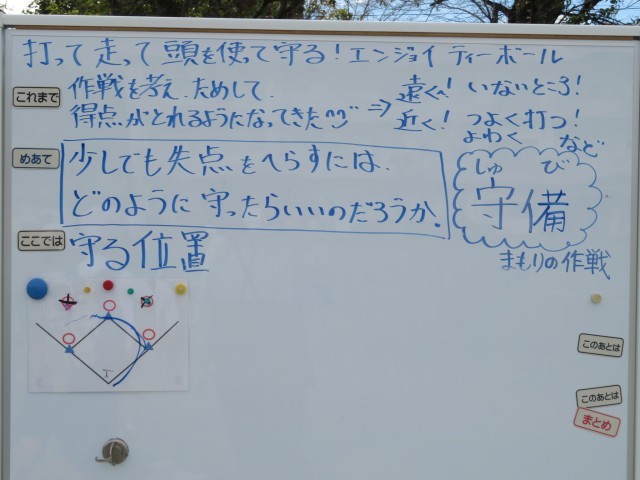 打って走って頭を使って守る!エンジョイ ティーボール
これまで
作戦を考え、ためして、
得点がとれるようになってきた^^
⇒
遠く! いないところ!
近く! つよく打つ!
よわく など
めあて
少しでも失点をへらすには、
どのように守ったらいいのだろうか。
しゅ び
守備
まもりの作戦
ここでは
守る位置
このあとは
このあとは
まとめ